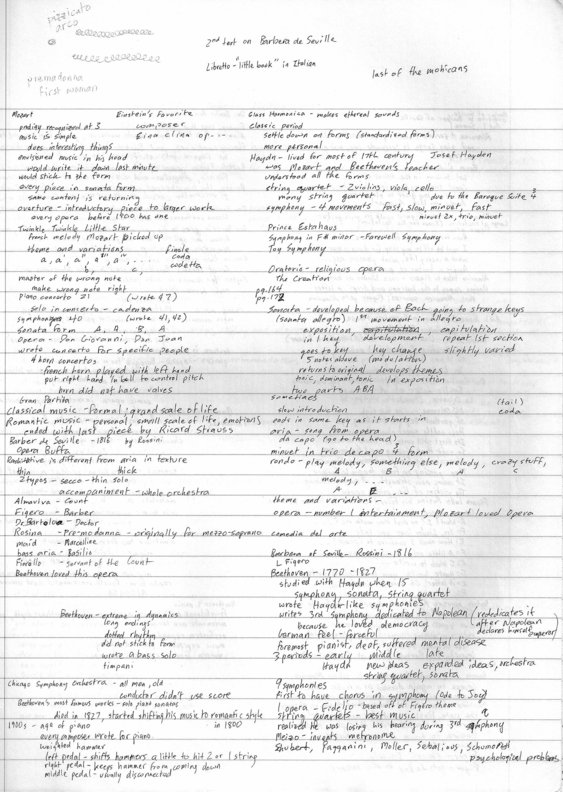 pizzicato
arco
premadonna
first woman
2nd test on Barbera de Seville
Libretto - "little book" in Italian
last of the mohicans
Mozart
Einstein's Favorite
prodigy recognized at 3
composer
music is simple
Eina clina op....
does interesting things
envisioned music in his head
would write it down last minute
would stick to the form
every piece in sonata form
same content is returning
overture - introductory piece to larger work
every opera before 1900 has one
Twinkle Twinkle Little Star
french melody Mozart picked up
theme and variations
finale
a, a', a", a"', a"",....
coda
b, c,
codetta
master of the wrong note
make wrong note right
Piano concerto 21 (wrote 27)
solo in concerto - cadenza
symphony 40 (wrote 41,42)
sonata form A, A, B, A
opera - Don Giovanni, Don Joan
wrote concerto for specific people
4 horn concertos
french horn played with left hand
put right hand in bell to control pitch
horn did not have valves
Gran Partita
Classical music - formal, grand scale of life
Romantic music - personal, small scale of life, emotions
ended with last piece by Ricard Strauss
Barber de Seville - 1816 by Rossini
Opera Buffa
Recitative is different from aria in texture
thin thick
2 types - secco - thin solo
accompaniment - whole orchestra
Almaviva - Count
Figero - Barber
Dr. Bartoloa - Doctor
Rosina - Premadonna - originally for mezzo-soprano
maid - Marcelline
bass aria - Basilio
Fiorello - servant of the Count
Beethoven loved this opera
Beethoven - extreme in dynamics
long endings
dotted rhythm
did not stick to form
wrote a bass solo
timpani
Chicago Symphony Orchestra - all men, old
conductor didn't use score
Beethoven's most famous works - solo piano sonatas
died in 1827, started shifting his music to romantic style
1900s - age of piano - in 1800
every composer wrote for piano
unified hammer
left pedal - shifts hammers a little to hit 2 or 1 string
right pedal - keeps hammer from coming down
middle pedal - usually disconnected
Glass Harmonica - makes ethereal sounds
classic period
settle down on forms (standardized forms)
more personal
Haydn - lived for most of 17th century Josef Haydon
was Mozart and Beethoven's teacher
understood all the forms
string quartet - 2 violins, viola, cello
many string quartet due to the Baroque Suite 3/4
symphony - 4 movements Fast, slow, minuet, fast
minuet 2x, trio, minuet
Prince Estahaus
Symphony in F# minor - Farewell Symphony
Toy Symphony
Oratorio - religious opera
The Creation
pg. 164
pg. 172
Sonata - developed because of Bach going to strange keys
(sonata allegro) 1st movement in allegro
exposition capitulation
in 1 key development repeat 1st section
goes to key key change slightly varied
5 notes above (modulation)
returns to original develops themes
tonic, dominant, tonic in exposition
two parts ABA
sometimes (tail)
slow introduction coda
ends in same key as it starts in
aria - song from opera
da capo (go to the head)
minuet in trio de capo 3/4 form
rondo - play melody, something else, melody, crazy stuff,
A B A C
melody,....
A
theme and variations -
opera - number 1 entertainment, Mozart loved Opera
comedia del arte
Barbera of Seville - Rossini - 1816
L Figero
Beethoven - 1770 - 1827
studied with Haydn when 15
symphony, sonata, string quartet
wrote Haydn-like symphonies
writes 3rd symphony dedicated to Napolean (rededicates it
because he loved democracy after Napolean
German feel - forceful declares himself emperor)
foremost pianist, deaf, suffered mental disease
3 periods - early middle late
Haydn new ideas expanded ideas, orchestra
string quartet, sonata
9 symphonies
first to have chorus in symphony (Ode to Joy)
1 opera - Fidelio - based off of Figero theme
string quartets - best music 9
realized he was losing his hearing during 3rd symphony
Melzo - invents metronome
Shubert, Pagganini, Moller, Sebalious, Schumann
psychological problems